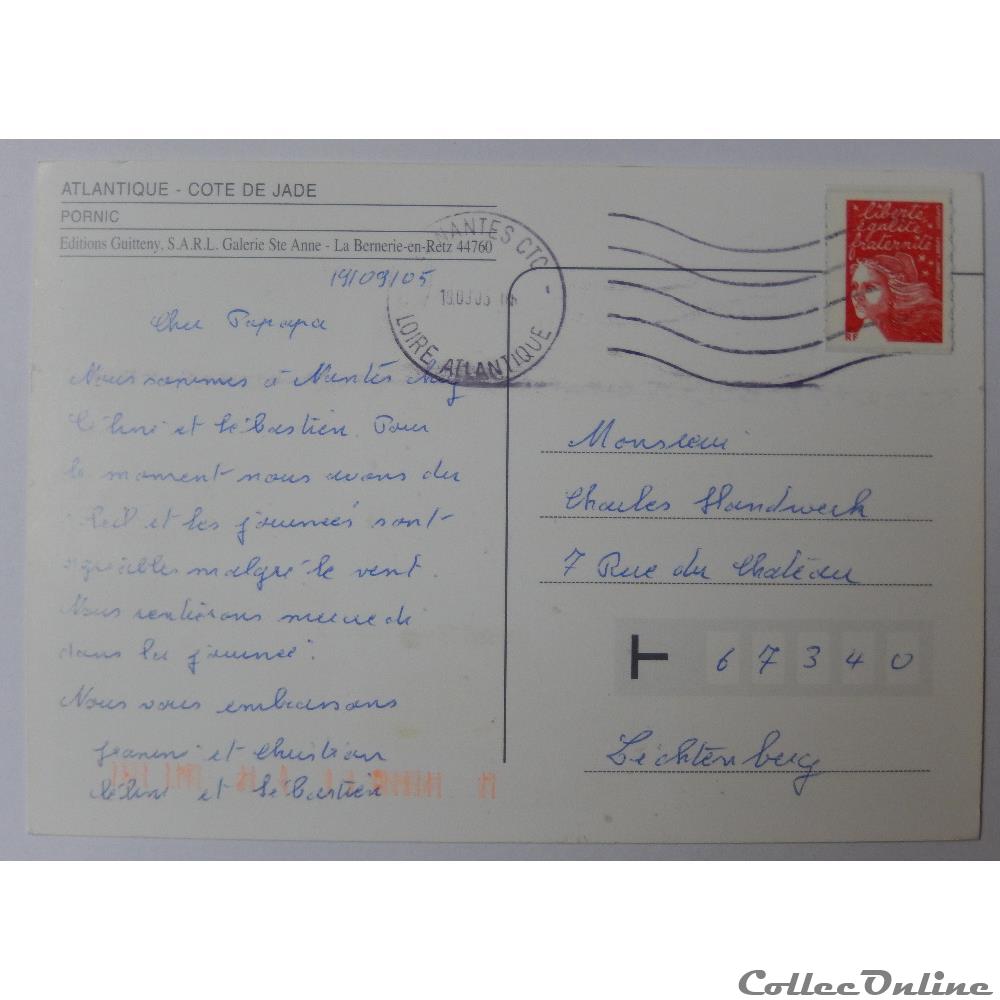 ATLANTIQUE - COTE DE JADE
PORNIC
Editions Guitteny, S.A.R.L. Galerie Ste Anne - La Bernerie-en-Retz 44760
19/09/05
Cher Papapa
Nous sommes à Nantes
et Sébastien. Pour
le moment nous avons du
et les journées sont
agréables malgré le vent.
Nous rentrerons
dans la journée.
Nous vous embrassons
et Christian
et Sébastien
NANTES CTC -
LOIRE ATLANTIQUE
liberté
égalité
fraternité
RF
Monsieur
Charles Handwerk
7 Rue du Château
67340
Lichtenberg
CollecOnline